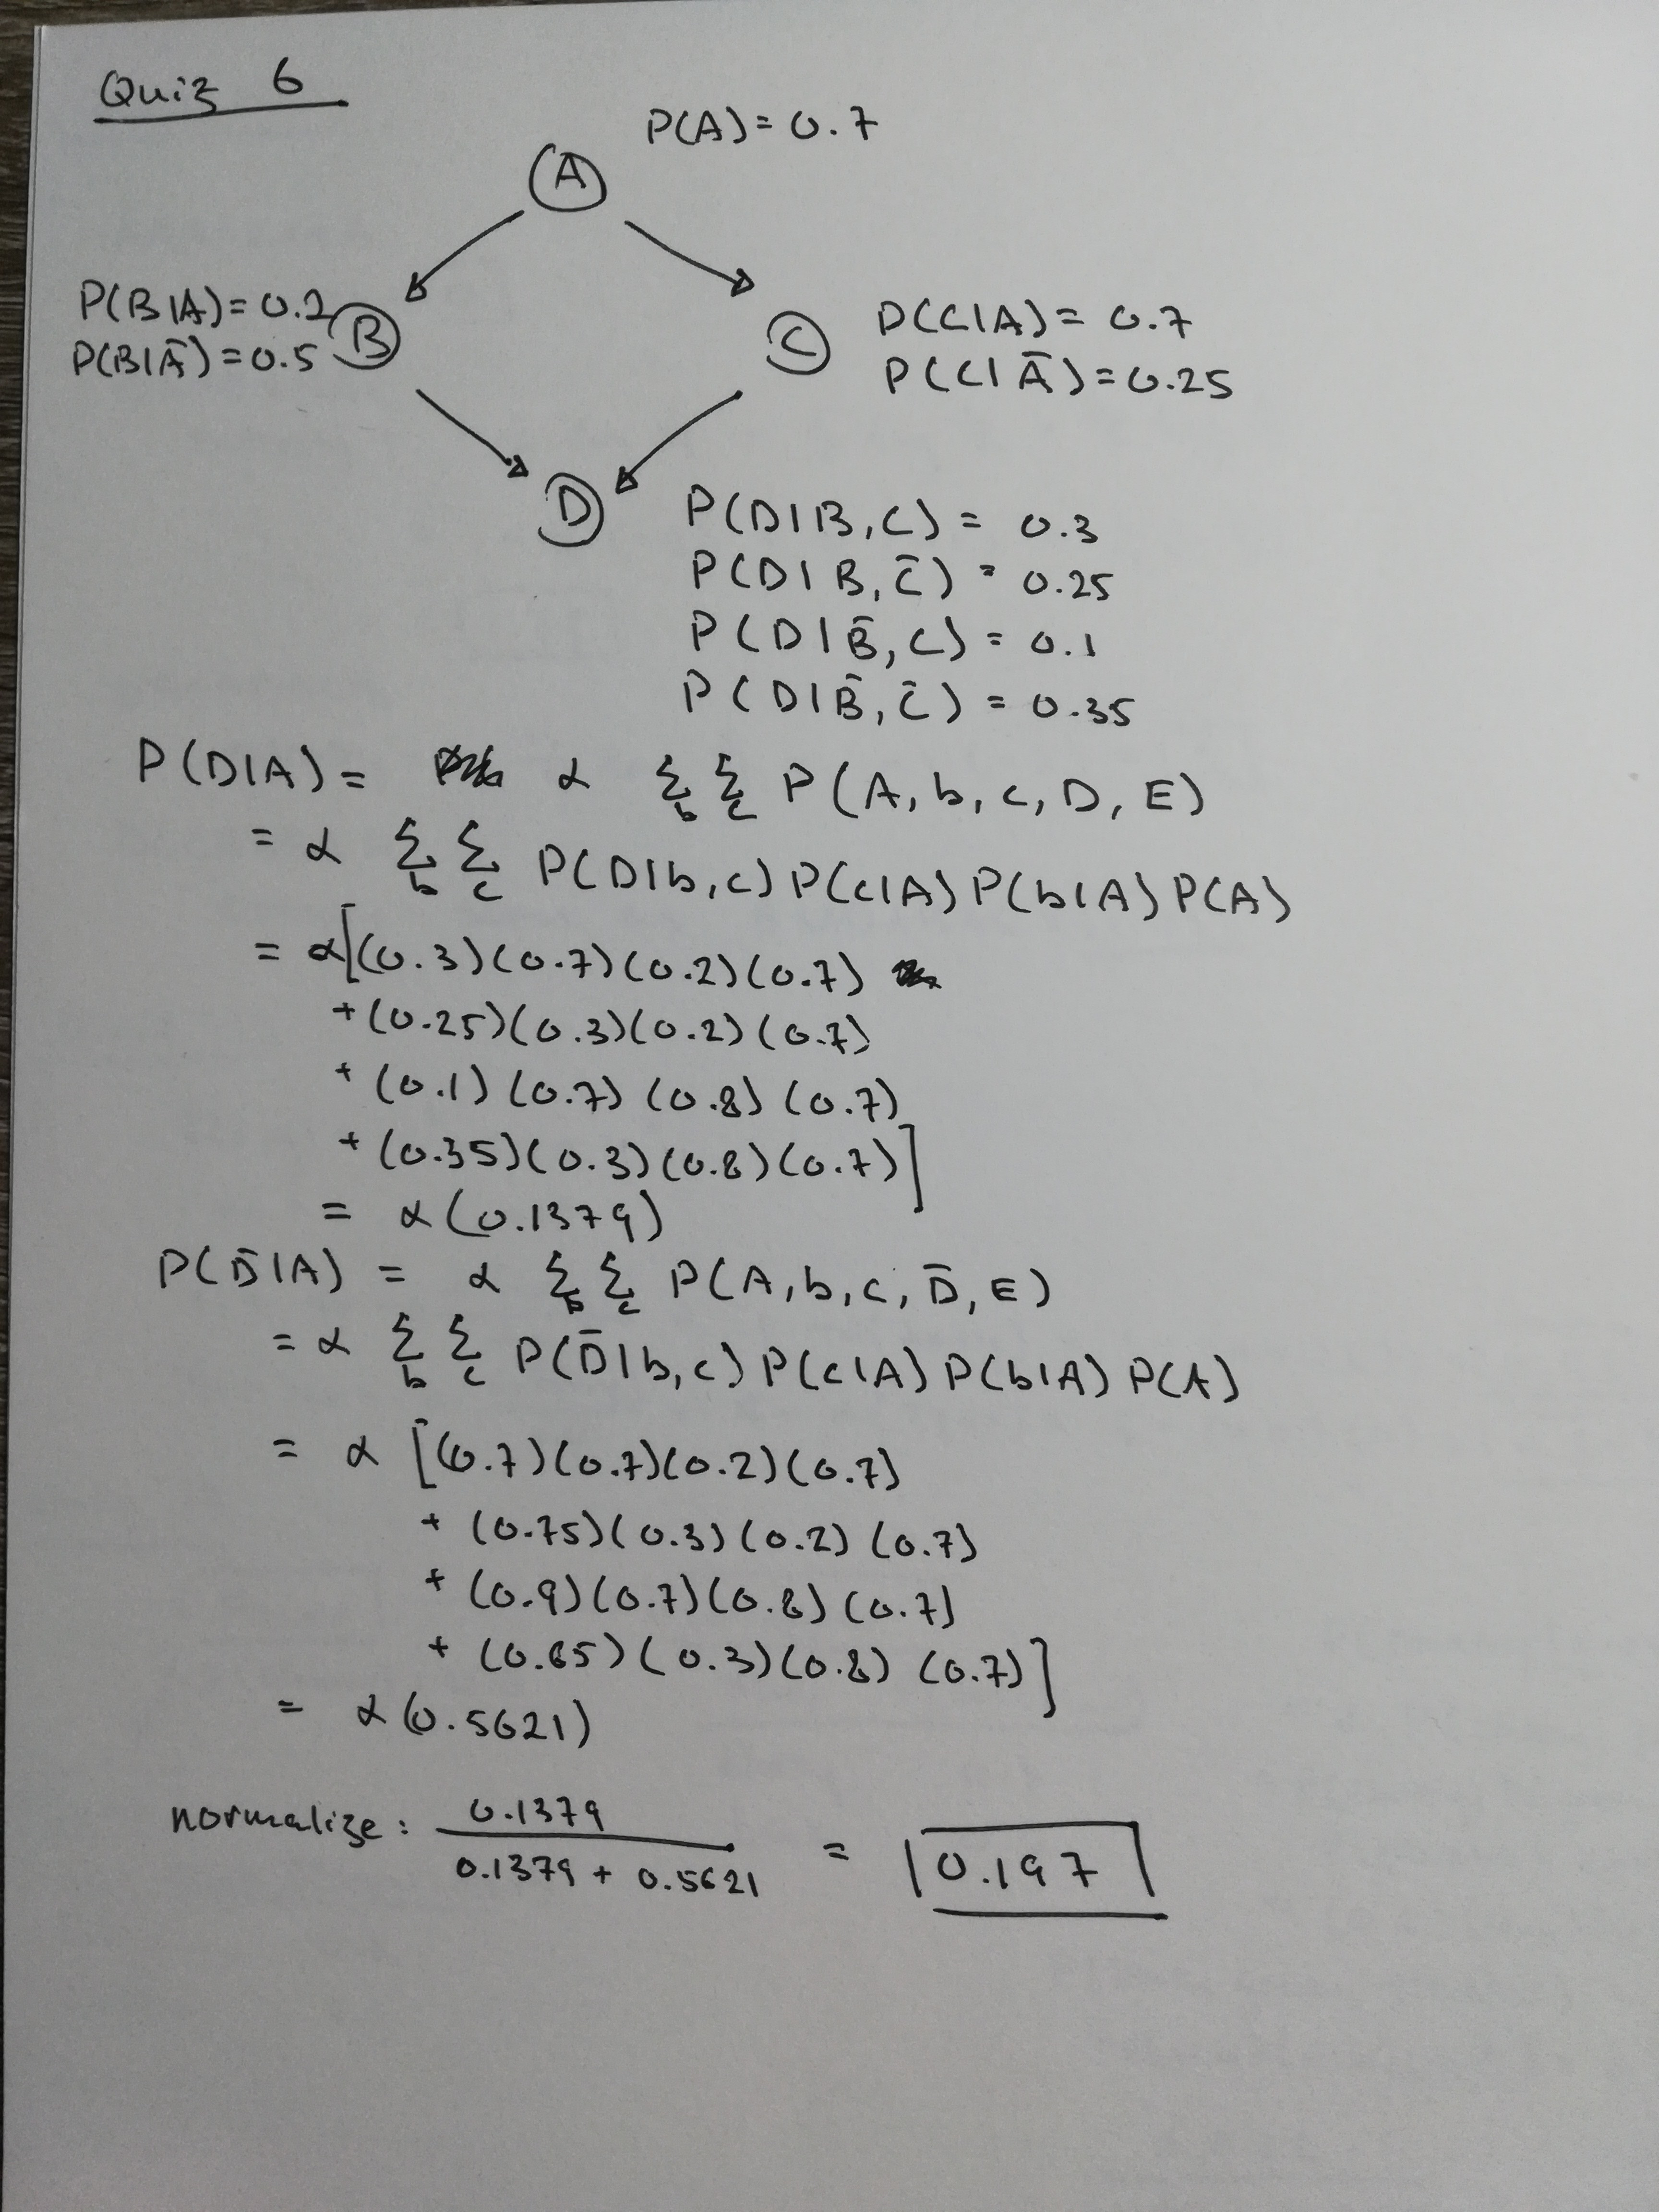 Quiz 6
P(A) = 0.7
A
P(B|A) = 0.2
P(B|Ā) = 0.5
B
C
P(C|A) = 0.7
P(C|Ā) = 0.25
D
P(D|B,C) = 0.3
P(D|B,C̄) = 0.25
P(D|B̄,C) = 0.1
P(D|B̄,C̄) = 0.35
P(D|A) = α Σ_b Σ_c P(A,b,c,D,E)
= α Σ_b Σ_c P(D|b,c) P(c|A) P(b|A) P(A)
= α[(0.3)(0.7)(0.2)(0.7)
+ (0.25)(0.3)(0.2)(0.7)
+ (0.1)(0.7)(0.8)(0.7)
+ (0.35)(0.3)(0.8)(0.7)]
= α(0.1379)
P(D̄|A) = α Σ_b Σ_c P(A,b,c,D̄,E)
= α Σ_b Σ_c P(D̄|b,c) P(c|A) P(b|A) P(A)
= α [(0.7)(0.7)(0.2)(0.7)
+ (0.75)(0.3)(0.2)(0.7)
+ (0.9)(0.7)(0.8)(0.7)
+ (0.65)(0.3)(0.8)(0.7)]
= α(0.5621)
normalize: 0.1379 / 0.1379 + 0.5621 = 0.197